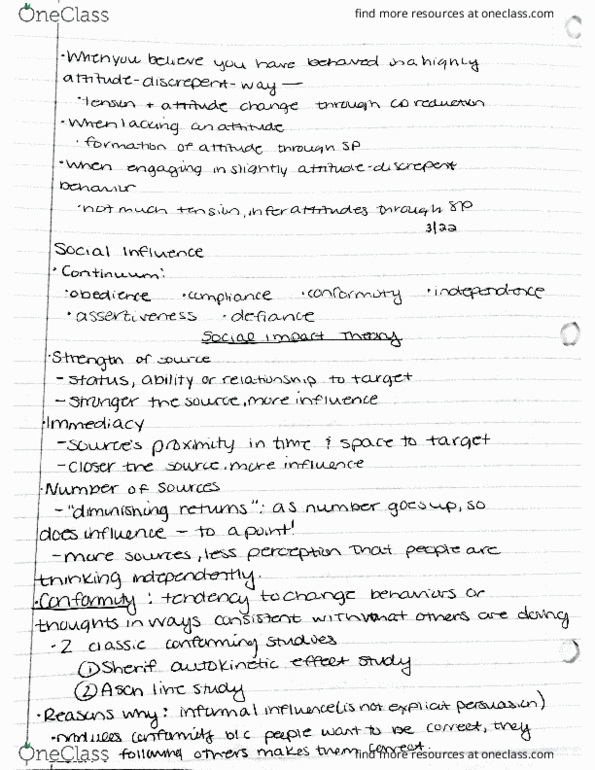 OneClass
find more resources at oneclass.com
• When you believe you have behaved in a highly
attitude-discrepent-way —
• tension + attitude change through CD reduction
• When lacking an attitude
• formation of attitude through SP
• When engaging in slightly attitude-discrepent
behavior
• not much tension, infer attitudes through SP
3/22
Social Influence
• Continuum:
• obedience • compliance • conformity • independence
• assertiveness • defiance
Social Impact Theory
• Strength of source
– status, ability or relationship to target
– stronger the source, more influence
• Immediacy
– source's proximity in time & space to target
– closer the source, more influence
• Number of sources
– "diminishing returns": as number goes up, so
does influence – to a point!
– more sources, less perception that people are
thinking independently.
• Conformity: tendency to change behaviors or
thoughts in ways consistent with what others are doing
• 2 classic conforming studies
① Sherif autokinetic effect study
② Asch line study
• Reasons why: informal influence (is not explicit persuasion)
• produces conformity b/c people want to be correct, they
following others makes them correct.
OneClass
find more resources at oneclass.com